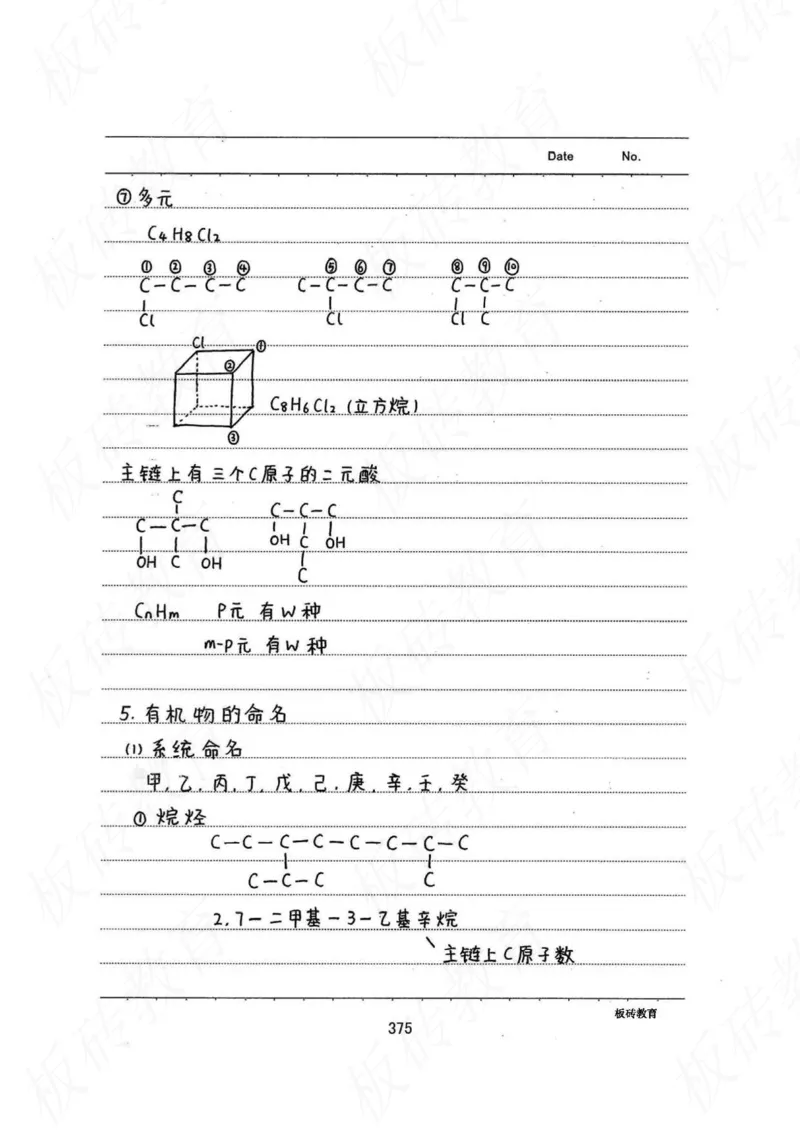 Date No.
⑦ 多元
C4H8Cl2
① ② ③ ④ ⑤ ⑥ ⑦ ⑧ ⑨ ⑩
C-C-C-C C-C-C-C C-C-C
Cl Cl Cl C
Cl ①
②
C8H6Cl2 (立方烷)
③
主链上有三个C原子的二元酸
C
C-C-C C-C-C
OH C OH OH C OH
C
CnHm P元 有W种
m-P元 有W种
5. 有机物的命名
(1) 系统命名
甲.乙.丙.丁.戊.己.庚.辛.壬.癸
① 烷烃
C-C-C-C-C-C-C-C
C-C-C C
2.7-二甲基-3-乙基辛烷
主链上C原子数
板砖教育
375
板砖教育